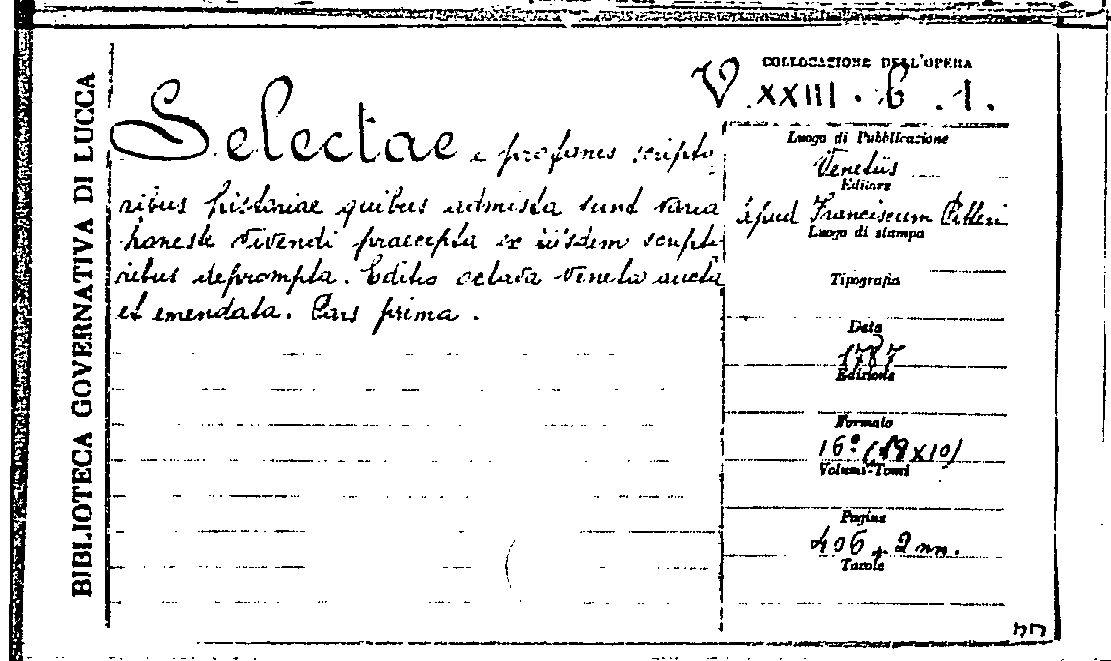 BIBLIOTECA GOVERNATIVA DI LUCCA
COLLOCAZIONE DELL'OPERA
V. XXIII. b. 1.
Selectae e profanis scripto
ribus historiae quibus admista sunt varia
honeste vivendi praecepta ex iisdem scripto
ribus deprompta. Editio octava Veneta aucta
et emendata. Pars prima.
Luogo di Pubblicazione
Venetiis
Editore
Apud Franciscum Pitteri
Luogo di stampa
Tipografia
Data
1787
Edizione
Formato
16° (18x10)
Volumi-Tomi
Pagine
406 + 2 nn.
Tavole